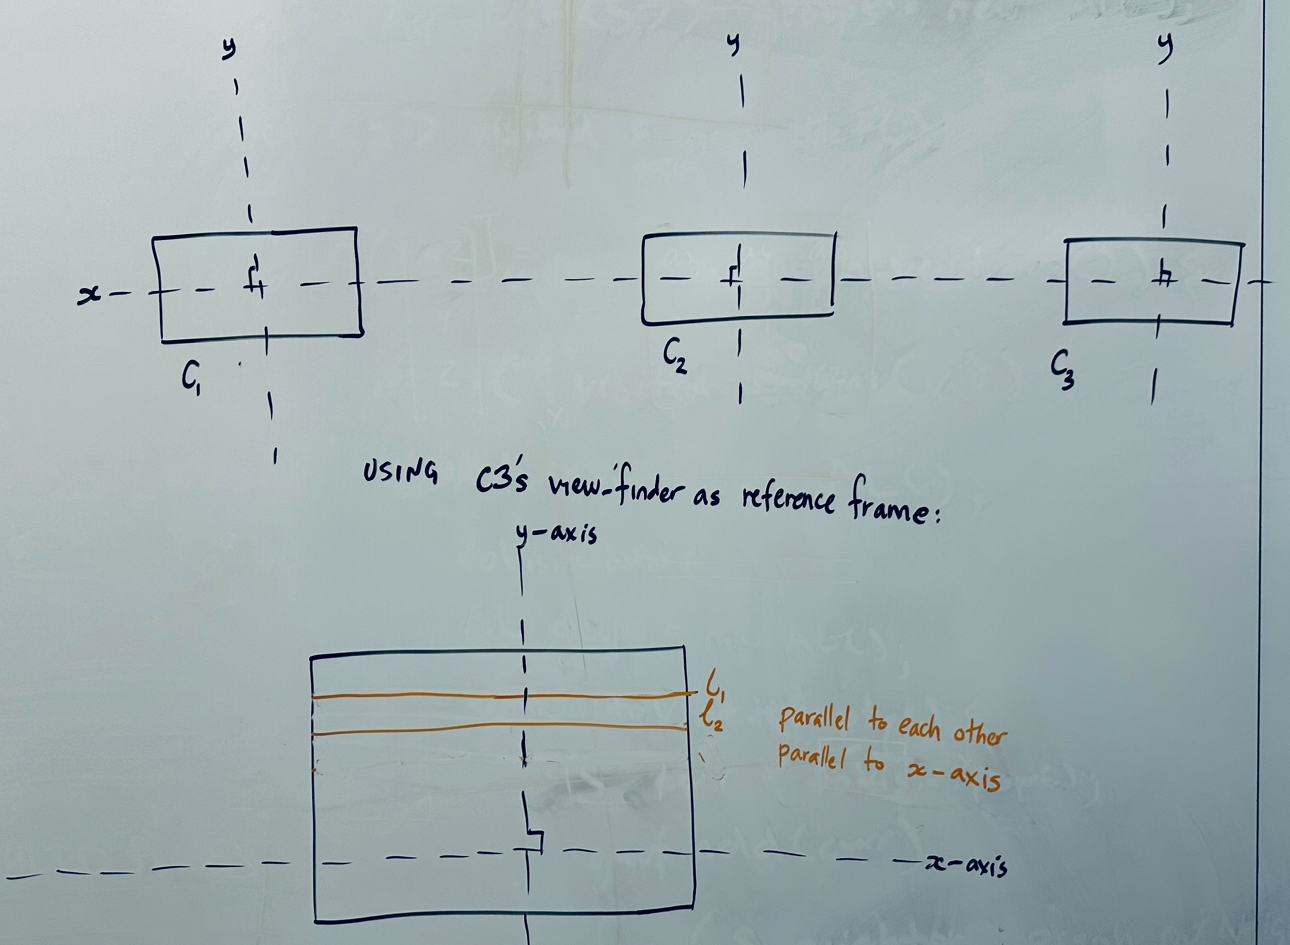 y y y
x
C₁ C₂ C₃
USING C3's view-finder as reference frame:
y-axis
l₁
l₂
parallel to each other
parallel to x-axis
x-axis